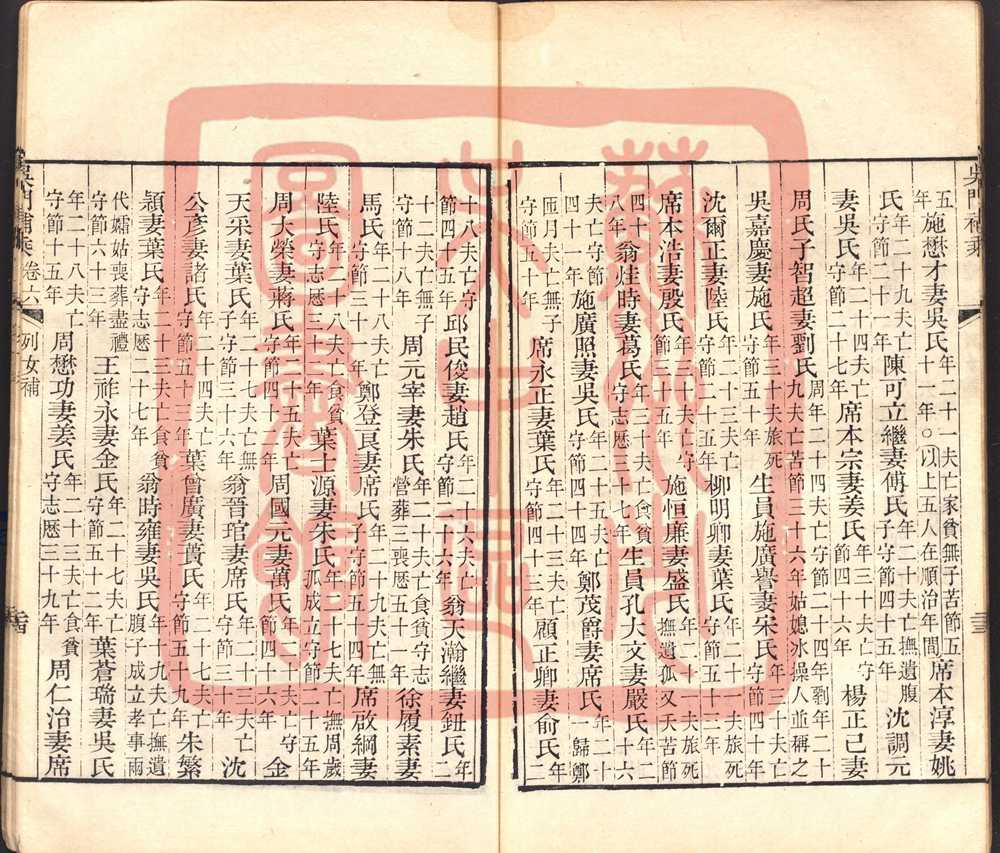 吳門補乘
五年施懋才妻吳氏年二十一夫亡家貧無子苦節五十一年○以上五人在順治年間席本淳妻姚
氏年二十九夫亡守節二十一年陳可立繼妻傅氏年二十夫亡撫遺腹子守節四十五年沈調元
妻吳氏年二十四夫亡守節二十七年席本宗妻姜氏年三十夫亡守節四十六年楊正己妻
周氏子智超妻劉氏周年二十四夫亡守節四年劉年二十九夫亡苦節三十六年姑媳冰操人並稱之
吳嘉慶妻施氏年三十夫旅死守節五十年生員施廣譽妻宋氏年三十夫亡守節四十年
沈爾正妻陸氏年二十三夫亡守節二十五年柳明卿妻葉氏年二十一夫旅死守節五十三年
席本浩妻殷氏年二十五夫亡守節三十五年施恒廉妻盛氏年二十一夫旅死撫遺孤又夭苦節
四十八年翁烓時妻葛氏年三十夫亡食貧守志歷三十七年生員孔大文妻嚴氏年二十六
夫亡守節四十一年施廣照妻吳氏年二十五夫亡守節四十四年鄭茂爵妻席氏年二十一歸鄭
匝月夫亡無子守節五十年席永正妻葉氏年二十三夫亡守節四十三年顧正卿妻俞氏年二
十八夫亡守節四十五年邱民俊妻趙氏年二十六夫亡守節二十六年翁天瀚繼妻鈕氏年二
十二夫亡無子守節十八年周元宰妻朱氏年二十夫亡食貧守志營葬三喪歷五十年徐履素妻
馬氏年二十八夫亡守節三十一年鄭登良妻席氏年二十九夫亡無子守節五十四年席啟綱妻
陸氏年二十八夫亡食貧守志歷三十年葉士源妻朱氏年三十七夫亡撫周歲孤成立守節二十五年
周大榮妻蔣氏年二十五夫亡守節四十年周國元妻萬氏年二十六夫亡守節四十六年金
天采妻葉氏年二十七夫亡無子守節三十六年翁晉琯妻席氏年二十三夫亡守節三十年沈
公彥妻諸氏年二十四夫亡守節五十三年葉曾廣妻萬氏年二十七夫亡守節五十九年朱繁
穎妻葉氏年二十三夫亡食貧守志歷二十七年翁時雍妻吳氏年十九夫亡撫遺腹子成立孝事兩
代孀姑喪葬盡禮守節六十三年王祚永妻金氏年二十七夫亡守節五十二年葉蒼瑞妻吳氏
年二十八夫亡守節十五年周懋功妻姜氏年二十三夫亡食貧守志歷三十九年周仁治妻席
吳門補乘 卷六 列女補